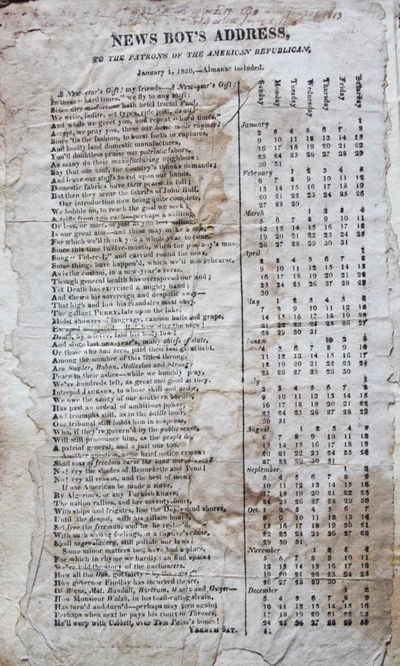 NEWS BOY'S ADDRESS,
TO THE PATRONS OF THE AMERICAN REPUBLICAN,
January 1, 1820,—Almanac included.
A New-year's Gift! my friends—A New-year's Gift!
In these "hard times," we fly to any shift:
Since dire misfortune hath befel friend Paul,
We write, indite, set types, ride post, do all;
And while we greet you, and repeat "hard times,"
Accept, we pray you, these our home-made rhymes!
Since 'tis the fashion, to burst forth in raptures,
And loudly laud domestic manufactures,
You'll doubtless praise our patriotic labors,
As many do their manufacturing neighbors:
Say that our zeal, the country's thanks demands;
And leave our stuffs to rot upon our hands.
Domestic fabrics have their praise in full;
But then they scent the fabrics of John Bull.
Our introduction now being quite complete,
We hobble on, to reach the goal we seek
A trifle from you each—perhaps a shilling,
Or less, or more, or just as you
Is our great aim—and those may
For which we'll think you a whole year to come.
Since this time twelve-month, when the post-boy's muse
Sung "Tid-re-I," and carried round the news,
Some things have happen'd, which we'll now rehearse,
As is the custom, in a new-year's verse.
Though general health has overspread our land;
Yet Death has exercised a mighty hand
And shewn his sovereign and despotic sway—
That high and low his mandates must obey.
The gallant PERRY, late up in the lakes,
Midst showers of langrage, cannon balls and grape,
Escaped
Death, by
And since last new-year's, many chiefs of state,
Or those who had been, paid their last
Among the number of this titled throng,
Are Snyder, Rabun, Molleston and Strong!
Peace to their ashes—while we humbly pray,
We've hundreds left, as great and good as they.
Intrepid JACKSON, to whose skill and ardor,
We owe the safety of our southern border,
Has past an ordeal of ambitious power,
And triumphs still, as in the battle hour.
One tribunal still holds him in suspense,
Who, if they're govern'd by the public sense,
Will still pronounce him, as the people do,
A patriot general, and a just one too.
Another question, some brief notice craves:
Shall sons of freedom curse the land with slaves?
No! cry the shades of Benezette and Penn!
No! cry all reason, and the best of men;
If one American be made a slave,
By Algerines, or any Turkish knave;
The nation rallies, and her seventy-fours,
With ships and frigates, line the Dey's proud shores,
Until the despot, with his villain hoard,
Set free the freeman, and he be restor'd.
With such strong feelings, in a captive's cause,
Shall negro slavery, still pollute our laws!
Some minor matters too, have had a place,
For which in rhyme we hardly can find space:
We've told the story of the auctioneers,
How all the
How governor Findlay has incurred the ire,
Of Binns, Mat. Randall, Bartram, Wurtz and Guyer—
How Monsieur Walsh, in his toad-eating strain,
Has turn'd and turn'd—perhaps may turn again;
Perhaps when next he pays his court to Thrones,
He'll weep with Cobbett, over Tom Paine's bones!
VERBUM SAT.
Sunday
Monday
Tuesday
Wednesday
Thursday
Friday
Saturday
January 1
2 3 4 5 6 7 8
9 10 11 12 13 14 15
16 17 18 19 20 21 22
23 24 25 26 27 28 29
30 31
February 1 2 3 4 5
6 7 8 9 10 11 12
13 14 15 16 17 18 19
20 21 22 23 24 25 26
27 28 29
March 1 2 3 4
5 6 7 8 9 10 11
12 13 14 15 16 17 18
19 20 21 22 23 24 25
26 27 28 29 30 31
April 1
2 3 4 5 6 7 8
9 10 11 12 13 14 15
16 17 18 19 20 21 22
23 24 25 26 27 28 29
30
May 1 2 3 4 5 6
7 8 9 10 11 12 13
14 15 16 17 18 19 20
21 22 23 24 25 26 27
28 29 30 31
June 1 2 3
4 5 6 7 8 9 10
11 12 13 14 15 16 17
18 19 20 21 22 23 24
25 26 27 28 29 30
July 1
2 3 4 5 6 7 8
9 10 11 12 13 14 15
16 17 18 19 20 21 22
23 24 25 26 27 28 29
30 31
August 1 2 3 4 5
6 7 8 9 10 11 12
13 14 15 16 17 18 19
20 21 22 23 24 25 26
27 28 29 30 31
September 1 2
3 4 5 6 7 8 9
10 11 12 13 14 15 16
17 18 19 20 21 22 23
24 25 26 27 28 29 30
Oct. 1 2 3 4 5 6 7
8 9 10 11 12 13 14
15 16 17 18 19 20 21
22 23 24 25 26 27 28
29 30 31
November 1 2 3 4
5 6 7 8 9 10 11
12 13 14 15 16 17 18
19 20 21 22 23 24 25
26 27 28 29 30
December 1 2
3 4 5 6 7 8 9
10 11 12 13 14 15 16
17 18 19 20 21 22 23
24 25 26 27 28 29 30
31